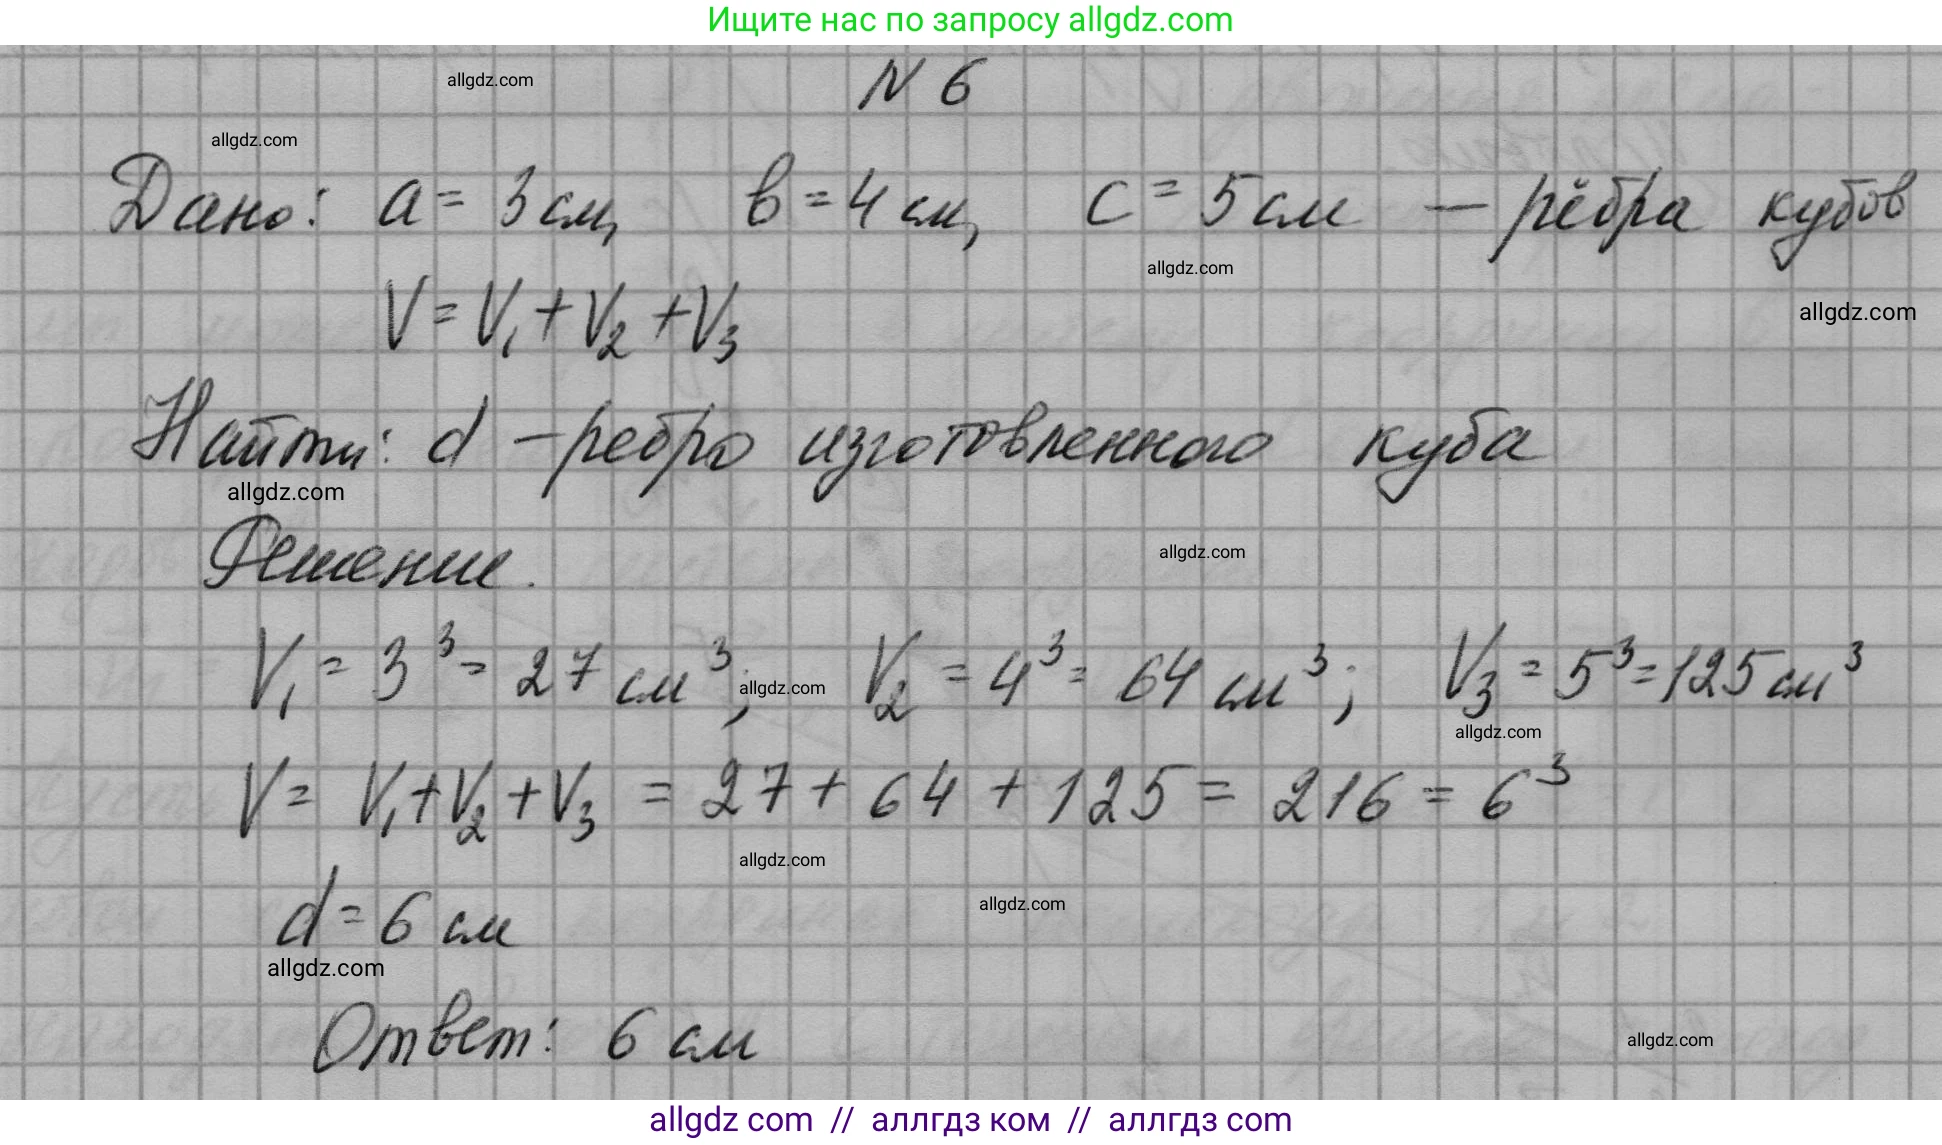 Ищите нас по запросу allgdz.com
allgdz.com
N 6
allgdz.com
Дано: a = 3 см, в = 4 см, c = 5 см — рёбра кубов
allgdz.com
allgdz.com
V = V₁ + V₂ + V₃
Найти: d - ребро изготовленного куба
allgdz.com
Решение.
allgdz.com
V₁ = 3³ = 27 см³; V₂ = 4³ = 64 см³; V₃ = 5³ = 125 см³
allgdz.com
allgdz.com
V = V₁ + V₂ + V₃ = 27 + 64 + 125 = 216 = 6³
allgdz.com
d = 6 см
allgdz.com
allgdz.com
Ответ: 6 см
allgdz.com
allgdz com // аллгдз ком // аллгдз com